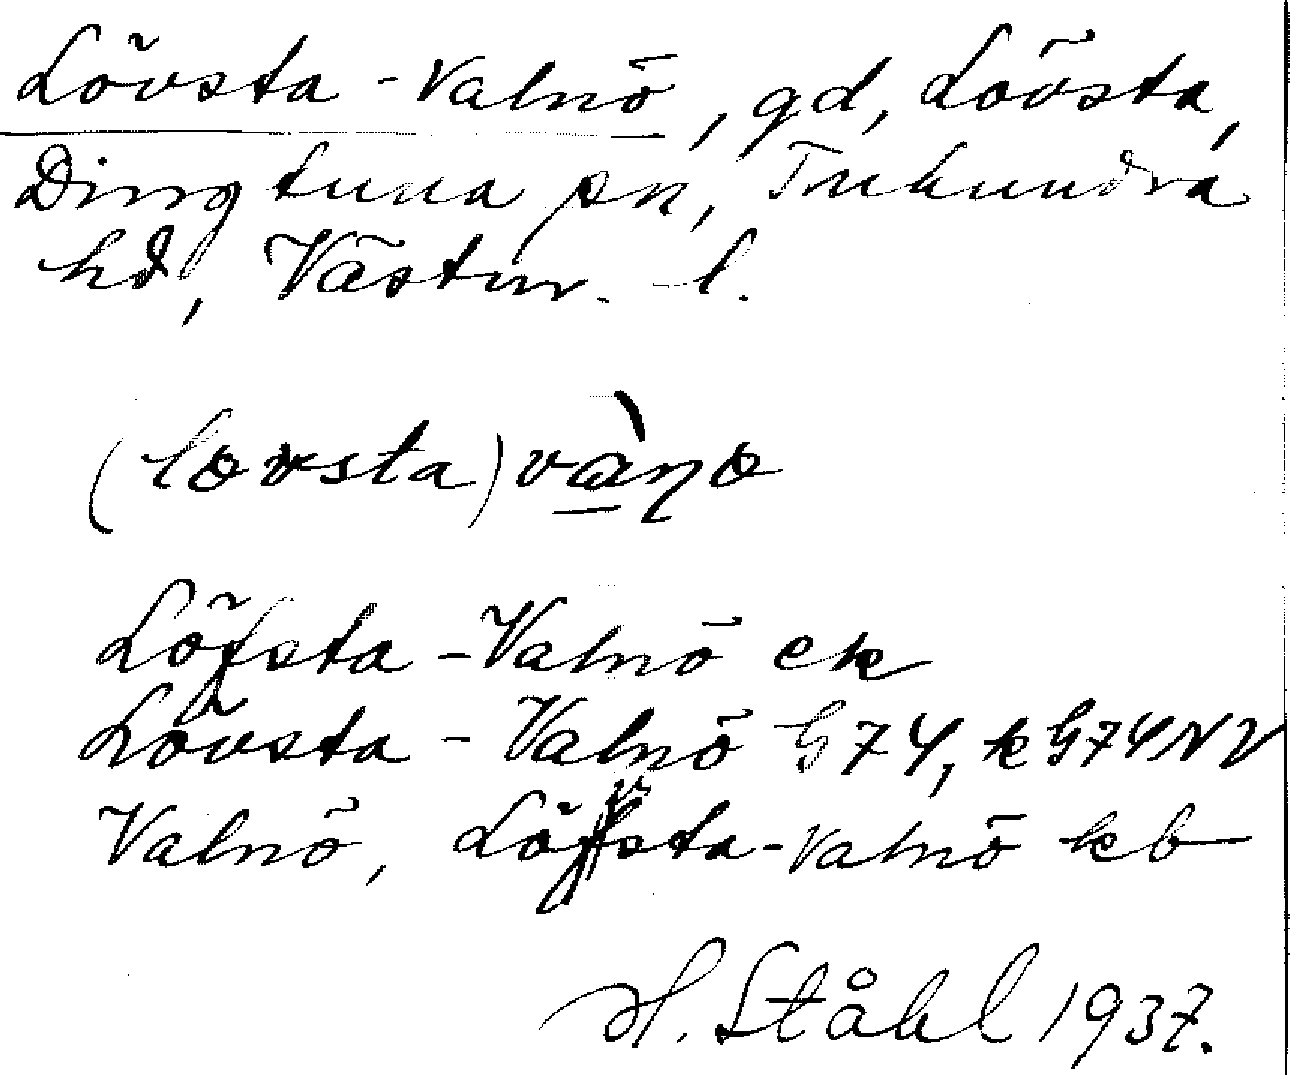 Lövsta-Valnö, gd, Lövsta,
Dingtuna sn, Tuhundra
hd, Västm. l.
(løvsta)vàṇø
Löfsta-Valnö ek
Lövsta-Valnö G74, k G74NV
Valnö, Löfsta-Valnö kb
H. Ståhl 1937.